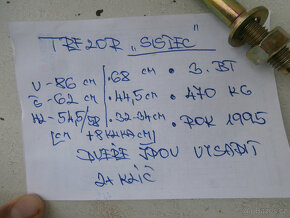 TREZOR „SISTEC"
V-86 cm .68 cm . 3. BT
Š-62 cm .44,5cm . 470 KG
HL-54,5/58 .32-34cm . ROK 1995
[cm +8 KLIKA cm]
DVEŘE JDOU VYSADIT
2x KLÍČ